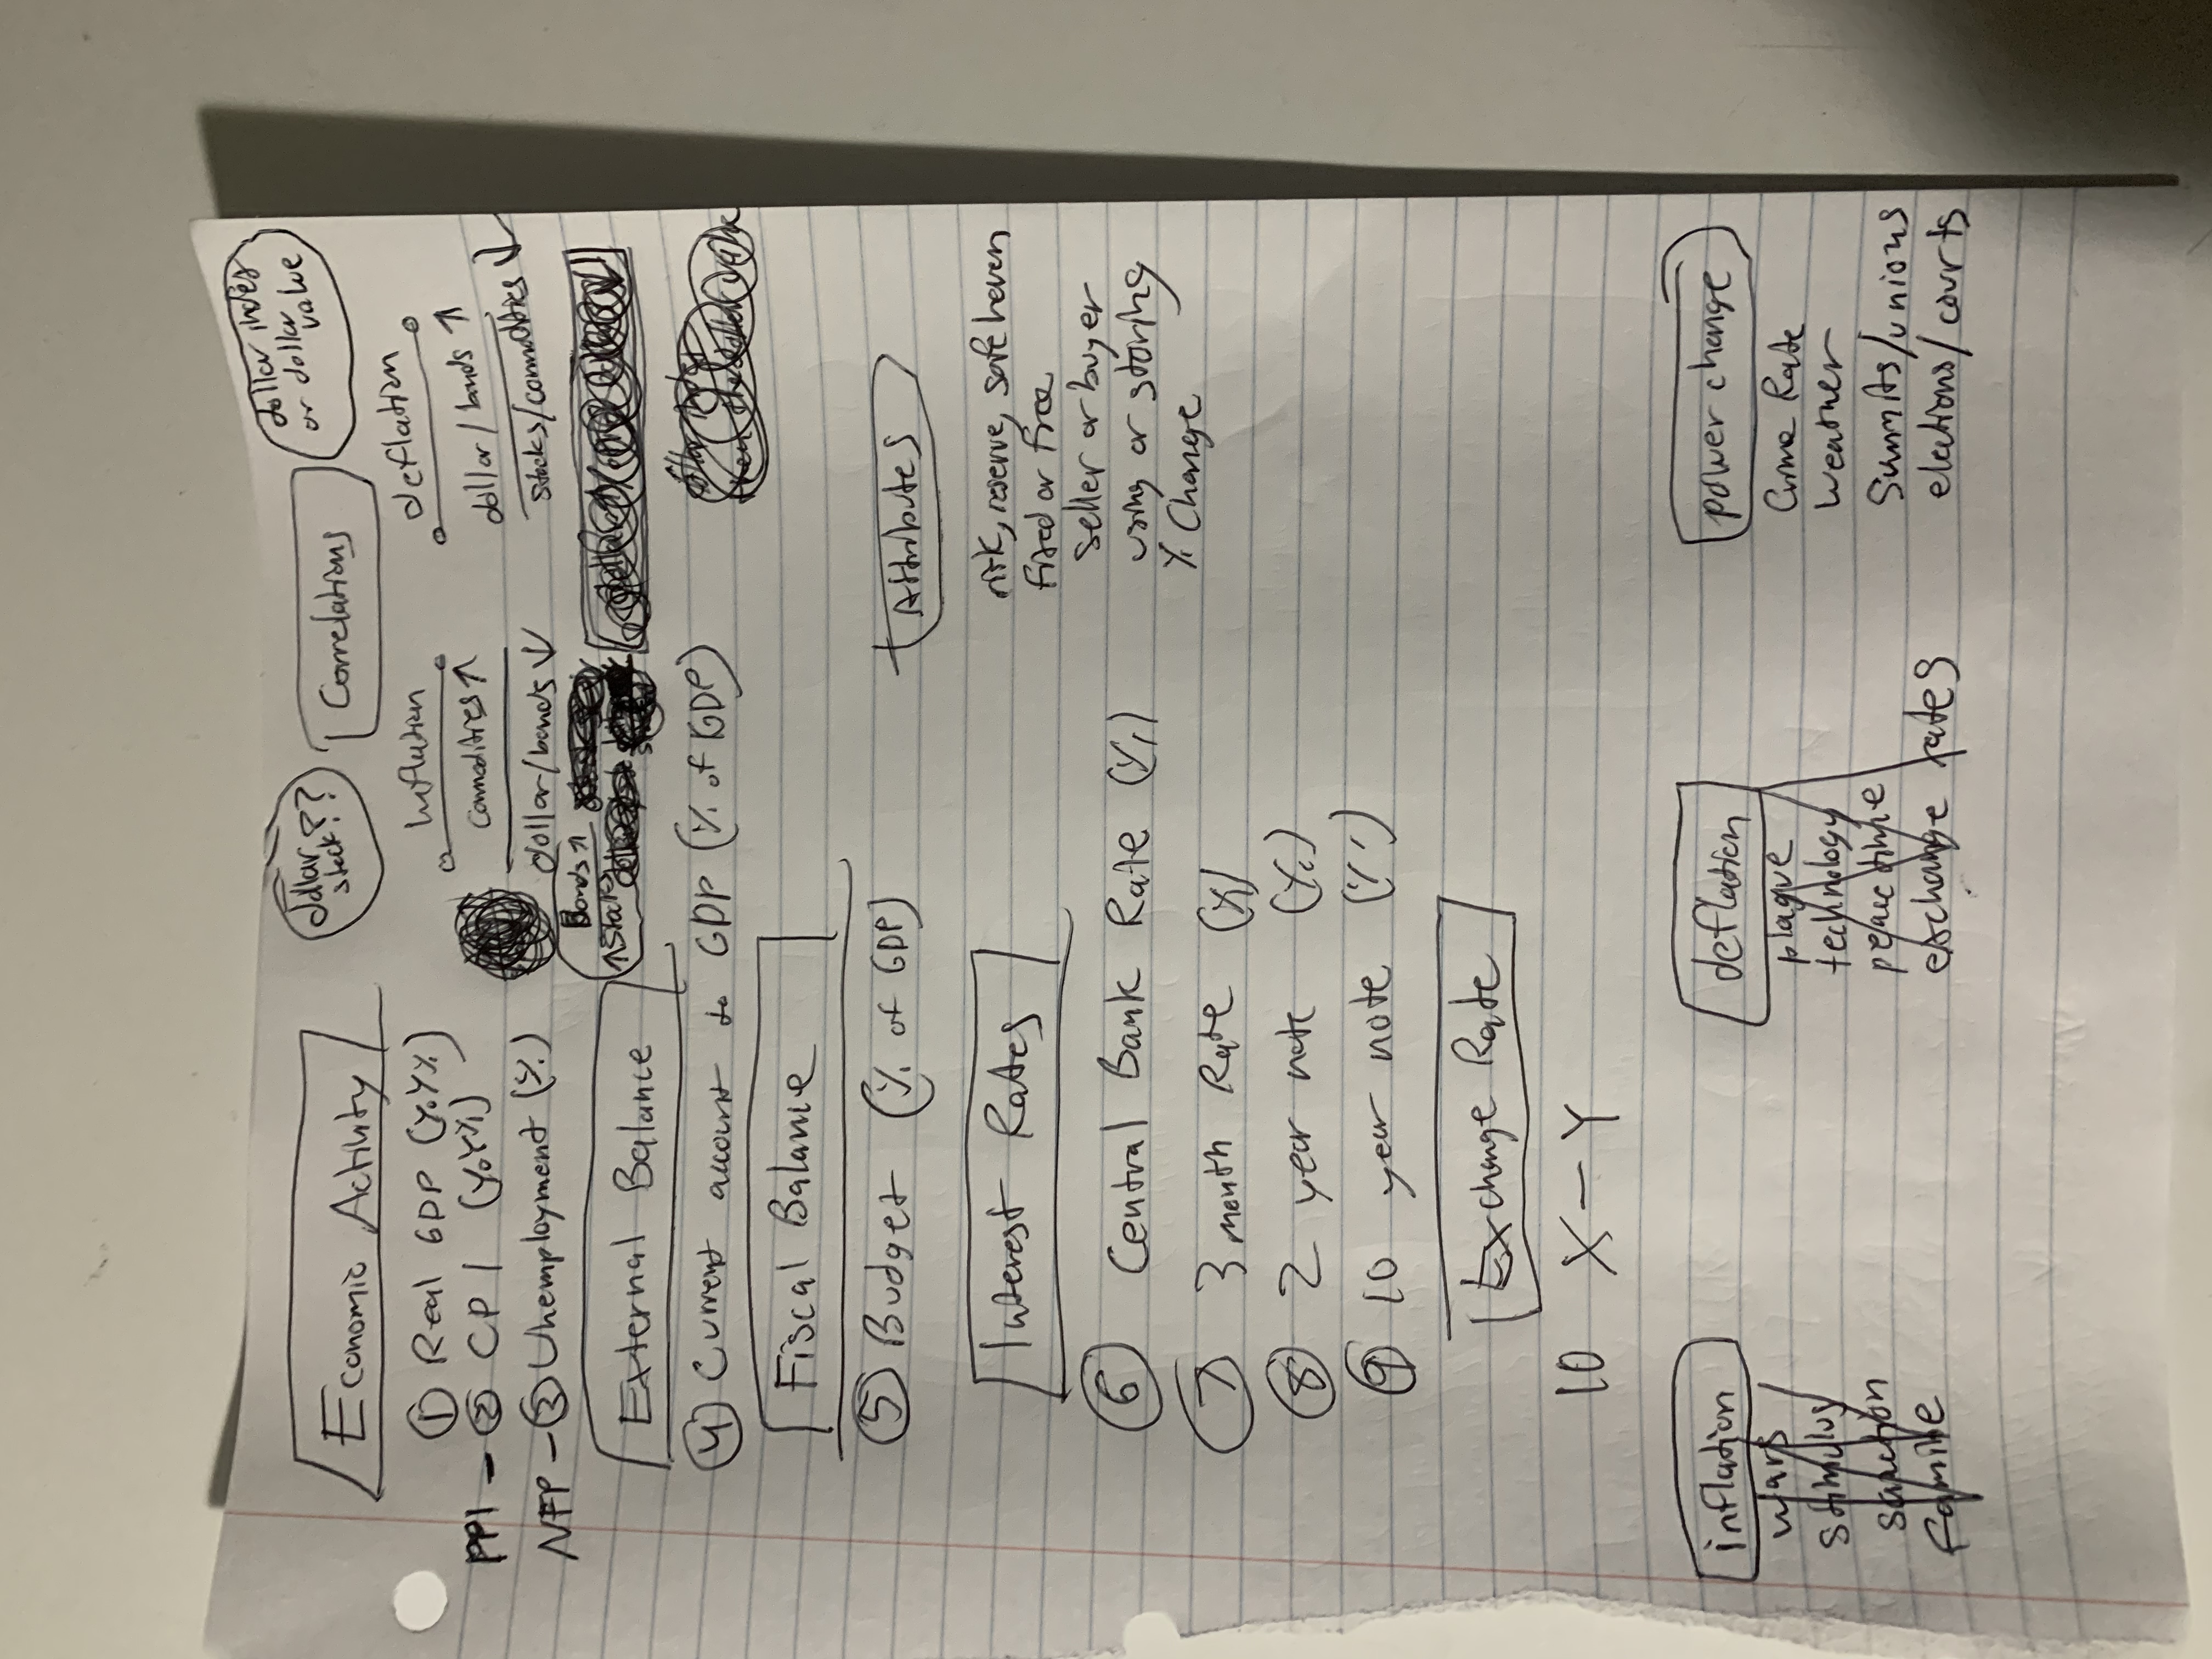 Economic Activity
① Real GDP (YoY%)
PPI - ② CPI (YoY%)
NFP - ③ Unemployment (%)
External Balance
④ Current account to GDP (% of GDP)
Fiscal Balance
⑤ Budget (% of GDP)
Interest Rates
⑥ Central Bank Rate (%)
⑦ 3 month Rate (%)
⑧ 2 year note (%)
⑨ 10 year note (%)
Exchange Rate
10 X - Y
dollar
stock??
Correlations
dollar index
or dollar
value
Inflation
Commodities ↑
dollar/bonds ↓
Bonds ↑
↑ Stocks
deflation
dollar/bonds ↑
stocks/commodities ↓
Attributes
risk, reserve, safe haven
fixed or free
seller or buyer
using or storing
% Change
inflation
wars
stimulus
sanction
famine
deflation
plague
technology
peace time
exchange rates
power change
Crime Rate
weather
Summits/unions
elections/courts